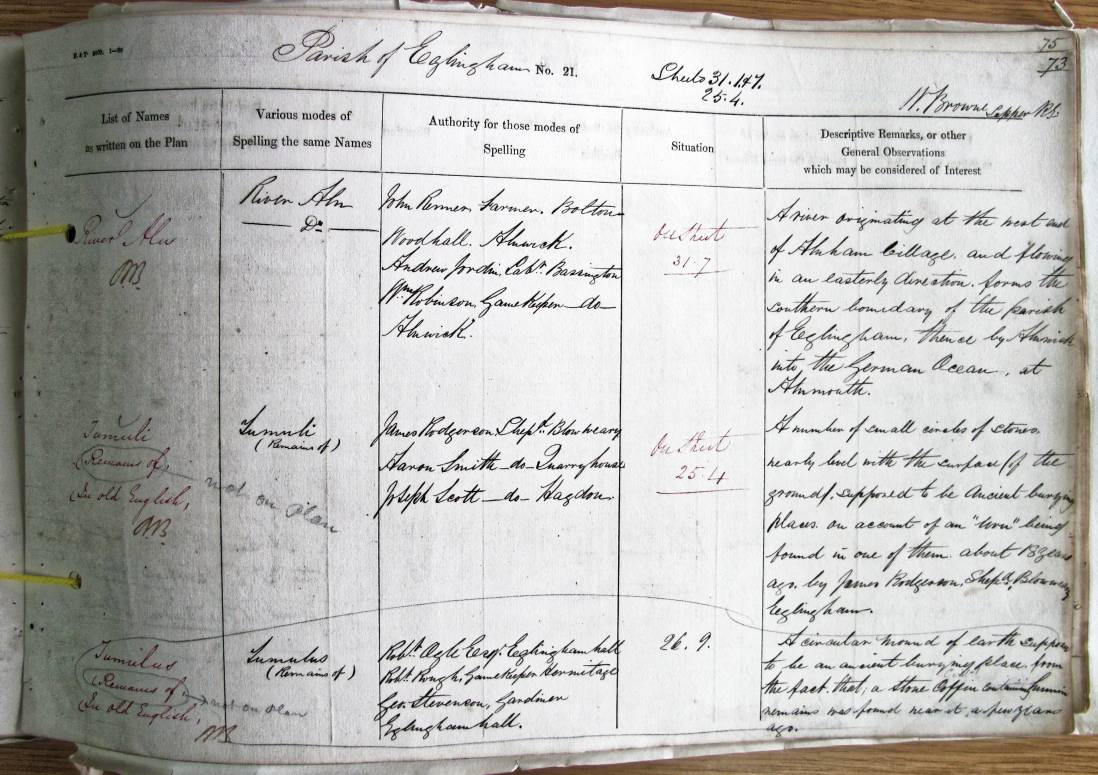 75
73
Parish of Eglingham No. 21.
Sheets 31.1+7.
25.4.
W. Browne Sapper RE
List of Names
as written on the Plan
Various modes of
Spelling the same Names
Authority for those modes of
Spelling
Situation
Descriptive Remarks, or other
General Observations
which may be considered of Interest
River Aln
River Aln
Do
John Renner, Farmer, Bolton
Woodhall. Alnwick.
Andrew Jordin, Labr. Bassington
Wm. Robinson, GameKeeper —do—
Alnwick.
On Sheet
31.7
A river originating at the west end
of Alnham Village, and flowing
in an easterly direction, forms the
southern boundary of the parish
of Eglingham, thence by Alnwick
into the German Ocean, at
Alnmouth.
Tumuli
(Remains of)
In old English,
not on Plan
Tumuli
(Remains of)
James Rodgerson, Shepd. Blawweary
Aaron Smith —do— Quarryhouse
Joseph Scott —do— Hagdon.
On Sheet
25.4
A number of small circles of stones
nearly level with the surface (of the
ground), supposed to be Ancient burying
places on account of an "Urn" being
found in one of them about 18 years
ago, by James Rodgerson, Shepd. Blawweary
Eglingham.
Tumulus
(Remains of)
In old English,
not on Plan
Tumulus
(Remains of)
Robt. Ogle Esqr. Eglingham hall
Robt. Rough, GameKeeper Hermitage
Geo. Stevenson, Gardiner
Eglingham hall.
26.9.
A circular mound of earth suppose
to be an ancient burying place, from
the fact that, a Stone Coffin containing human
remains was found near it, a few years
ago.